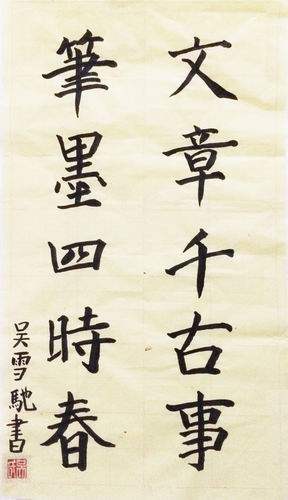 文章千古事
筆墨四時春
吴雪馳書